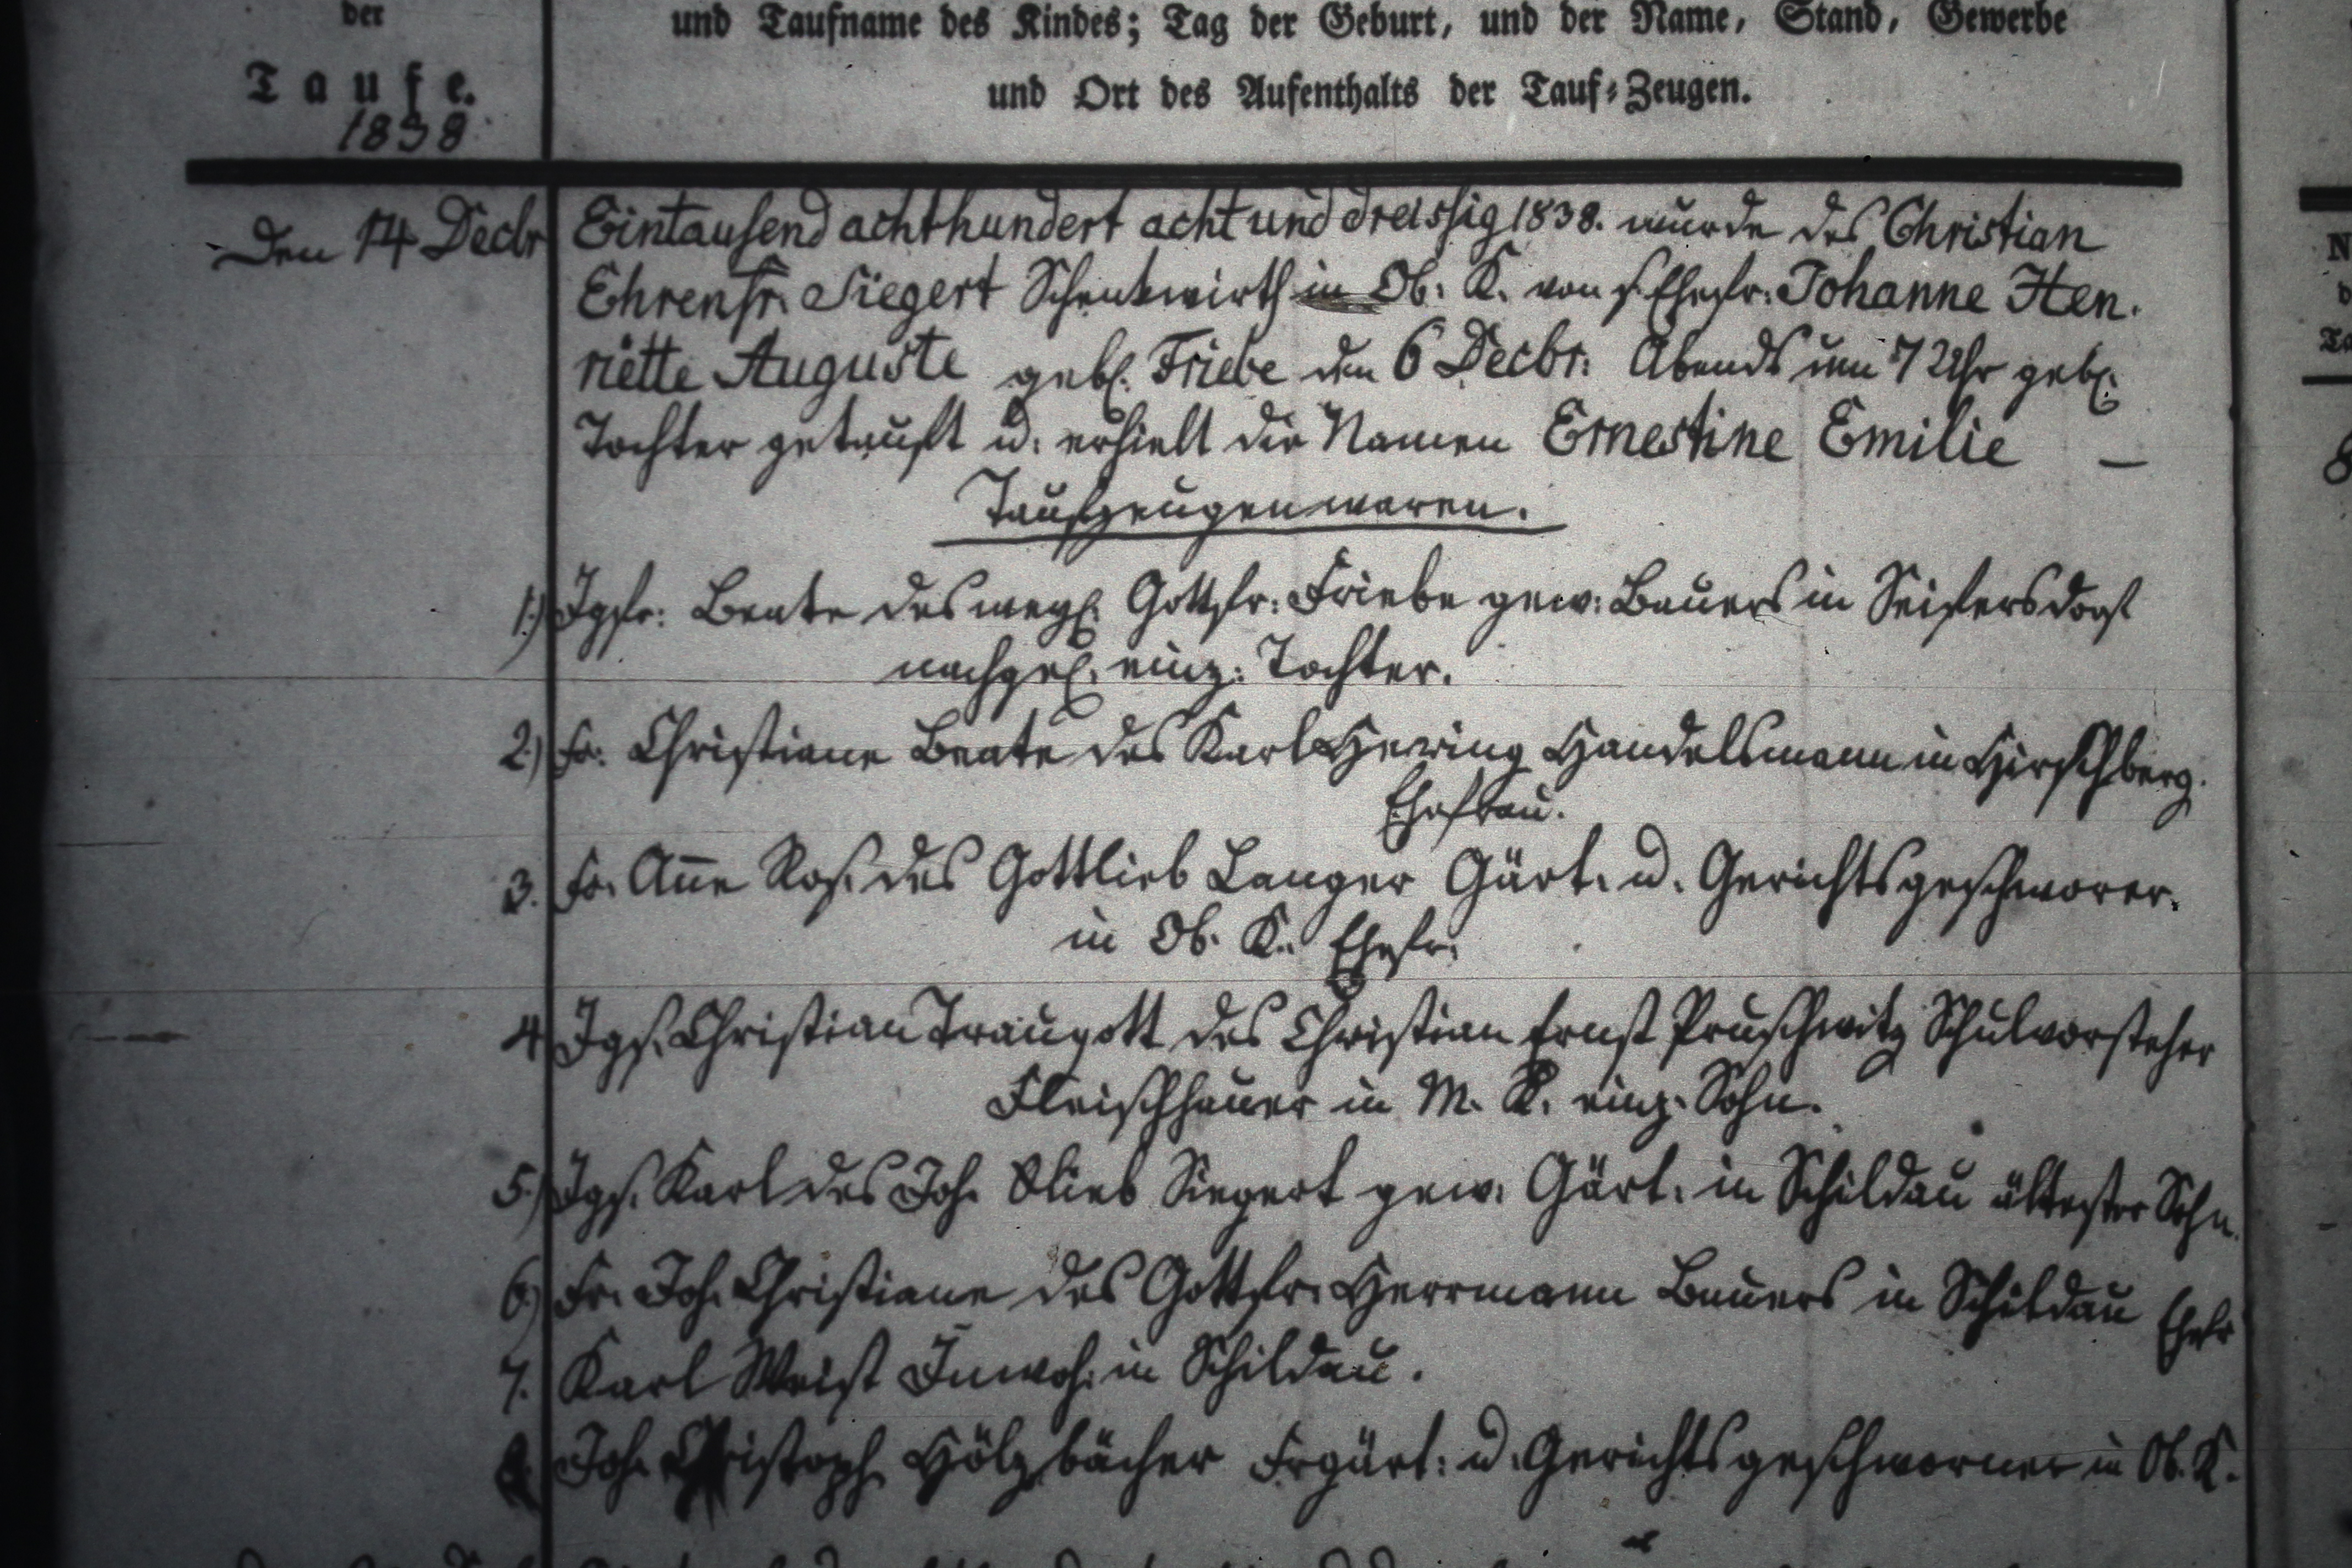 der
und Taufname des Kindes; Tag der Geburt, und der Name, Stand, Gewerbe
Taufe.
und Ort des Aufenthalts der Tauf-Zeugen.
1838
Den 14 Decbr Eintausend achthundert acht und dreissig 1838. wurde des Christian
Ehrenfr. Siegert Schenkwirth in Ob. K. von s. Ehefr. Johanne Hen.
riette Auguste geb. Friebe den 6 Decbr. Abends um 7 Uhr geb.
Tochter getauft u. erhielt die Namen Ernestine Emilie —
Taufzeugen waren.
1.) Igfr. Beate des Gottfr. Friebe gew. Bauers in Seifersdorf
nachgel. einz. Tochter.
2.) Fr. Christiane Beate des Karl Hering Handelsmann in Hirschberg.
Ehefrau.
3. Fr. Anne Ros. des Gottlieb Langer Gärt. u. Gerichtsgeschworer.
in Ob. K. Ehefr.
4. Igs. Christian Traugott des Christian Ernst Pruschwitz Schulvorsteher
Fleischhauer in M. K. einz. Sohn.
5.) Igs. Karl des Joh. Siegert gew. Gärt. in Schildau ältester Sohn.
6.) Fr. Joh. Christiane des Gottfr. Herrmann Bauers in Schildau Ehefr
7. Karl Weist Inwoh. in Schildau.
8. Joh. Christoph Hölzbächer Frgärt. u. Gerichtsgeschworner in Ob. K.